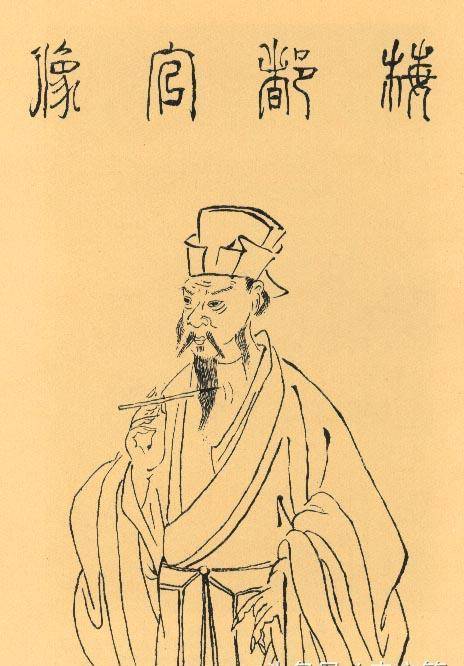 梅都官像